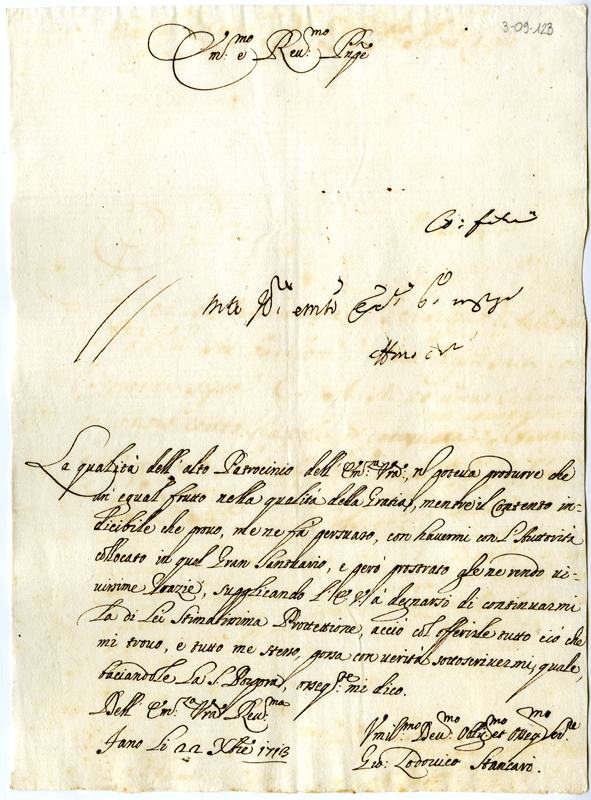 3-09-123
Em:mo e Reu:mo Pnpe
La qualità dell'alto Patrocinio dell'Em:za Vra, nō poteua produrre che
un equal frutto nella qualità della Gratia, mentre il Contento in=
dicibile che prouo, me ne fà persuaso, con hauermi con l'Auttorità
collocato in qual Gran Santuario, e però prostrato gle ne rendo ui=
uissime Grazie, supplicando l'E.V. à degnarsi di continuarmi
La di Lei Stimatissima Protettione, acciò col offerirle tutto ciò che
mi trouo, e tutto me stesso, possa con verità sottoscriuermi, quale,
baciandole La S. Porpora, osseq:te mi dico.
Dell'Em:za Vra Reu:ma
Fano Li 22 Xbre 1713
Vmil:mo Deu:mo Obl:mo et Osseq:mo
Gio: Lodouico Stancari.